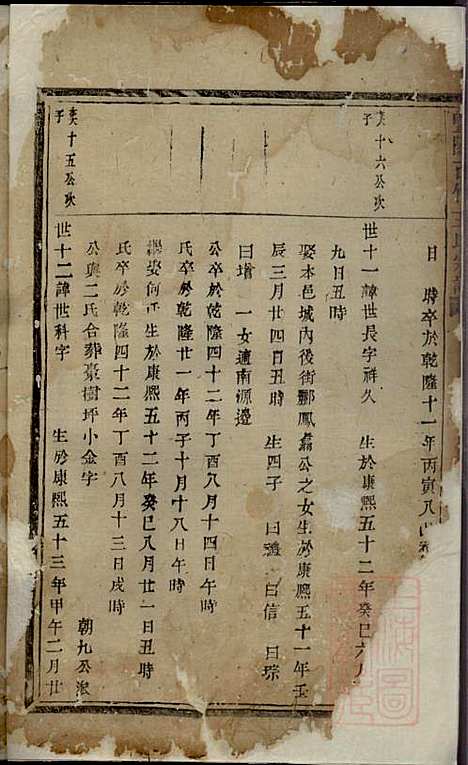 日 時卒於乾隆十一年丙寅八
十六公次
子
世十一諱世長字祥久 生於康熙五十二年癸巳六月
九日丑時
娶本邑城內後街酈鳳 公之女生於康熙五十一年壬
辰三月廿四日丑時 生四子 曰 曰信 曰琮
曰增 一女適南源邊
公卒於乾隆四十二年丁酉八月十四日午時
氏卒於乾隆廿一年丙子十月十八日午時
娶何氏生於康熙五十二年癸巳八月廿一日丑時
氏卒於乾隆四十二年丁酉八月十三日戌時
公與二氏合葬棗樹坪小金字 朝九公
十五公次
子
世十二諱世科字 生於康熙五十三年甲午二月廿